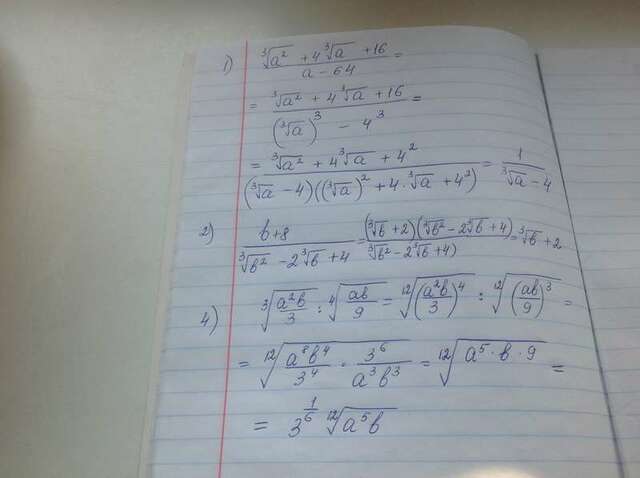 1) (∛a² + 4∛a + 16)/(a − 64) =
= (∛a² + 4∛a + 16)/((∛a)³ − 4³) =
= (∛a² + 4∛a + 4²)/((∛a − 4)((∛a)² + 4·∛a + 4²)) = 1/(∛a − 4)
2) (b + 8)/(∛b² − 2∛b + 4) = (∛b + 2)(∛b² − 2∛b + 4)/(∛b² − 2∛b + 4) = ∛b + 2
4) ∛(a²b/3) : ∜(ab/9) = ¹²√((a²b/3)⁴) : ¹²√((ab/9)³) =
= ¹²√(a⁸b⁴/3⁴ · 3⁶/a³b³) = ¹²√(a⁵·b·9) =
= 3^(1/6) ¹²√(a⁵b)